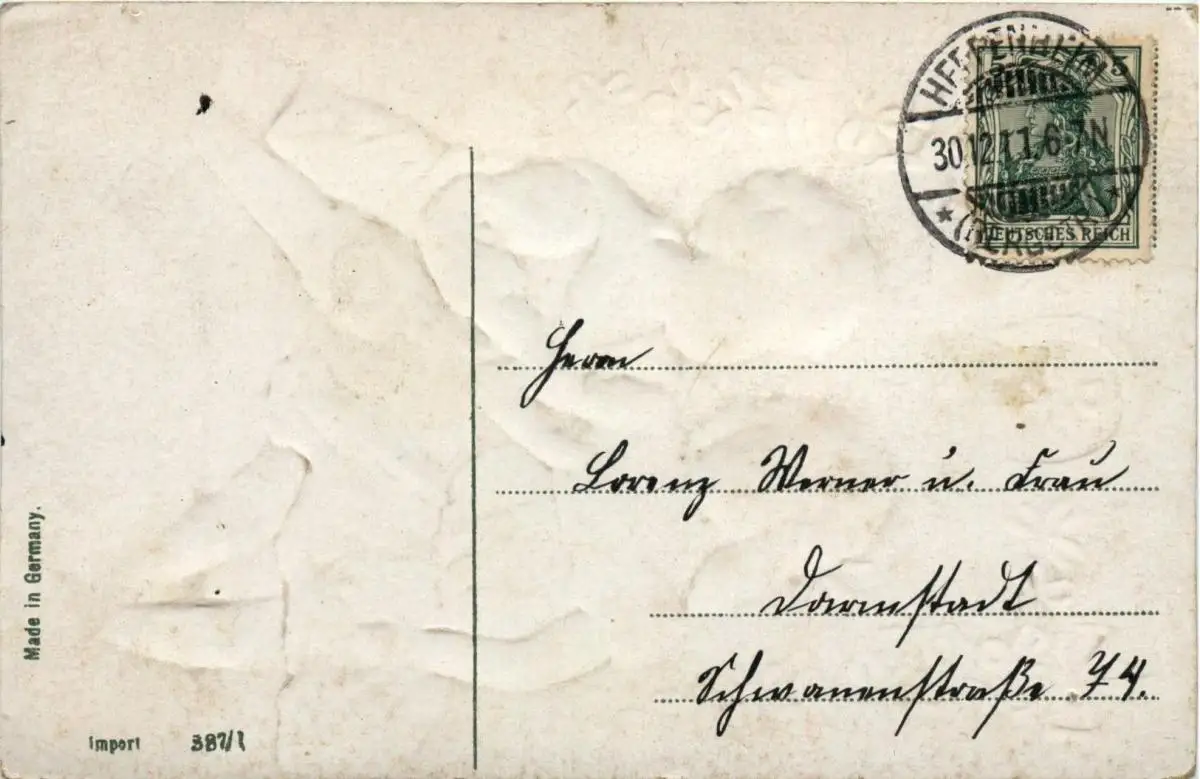 HEPPENHEIM
30.12.11.6-7N
* (BERGSTR.) *
5
DEUTSCHES REICH
Herrn
Lorenz Werner u. Frau
Darmstadt
Schwanenstraße 74.
Made in Germany.
Import 387/1